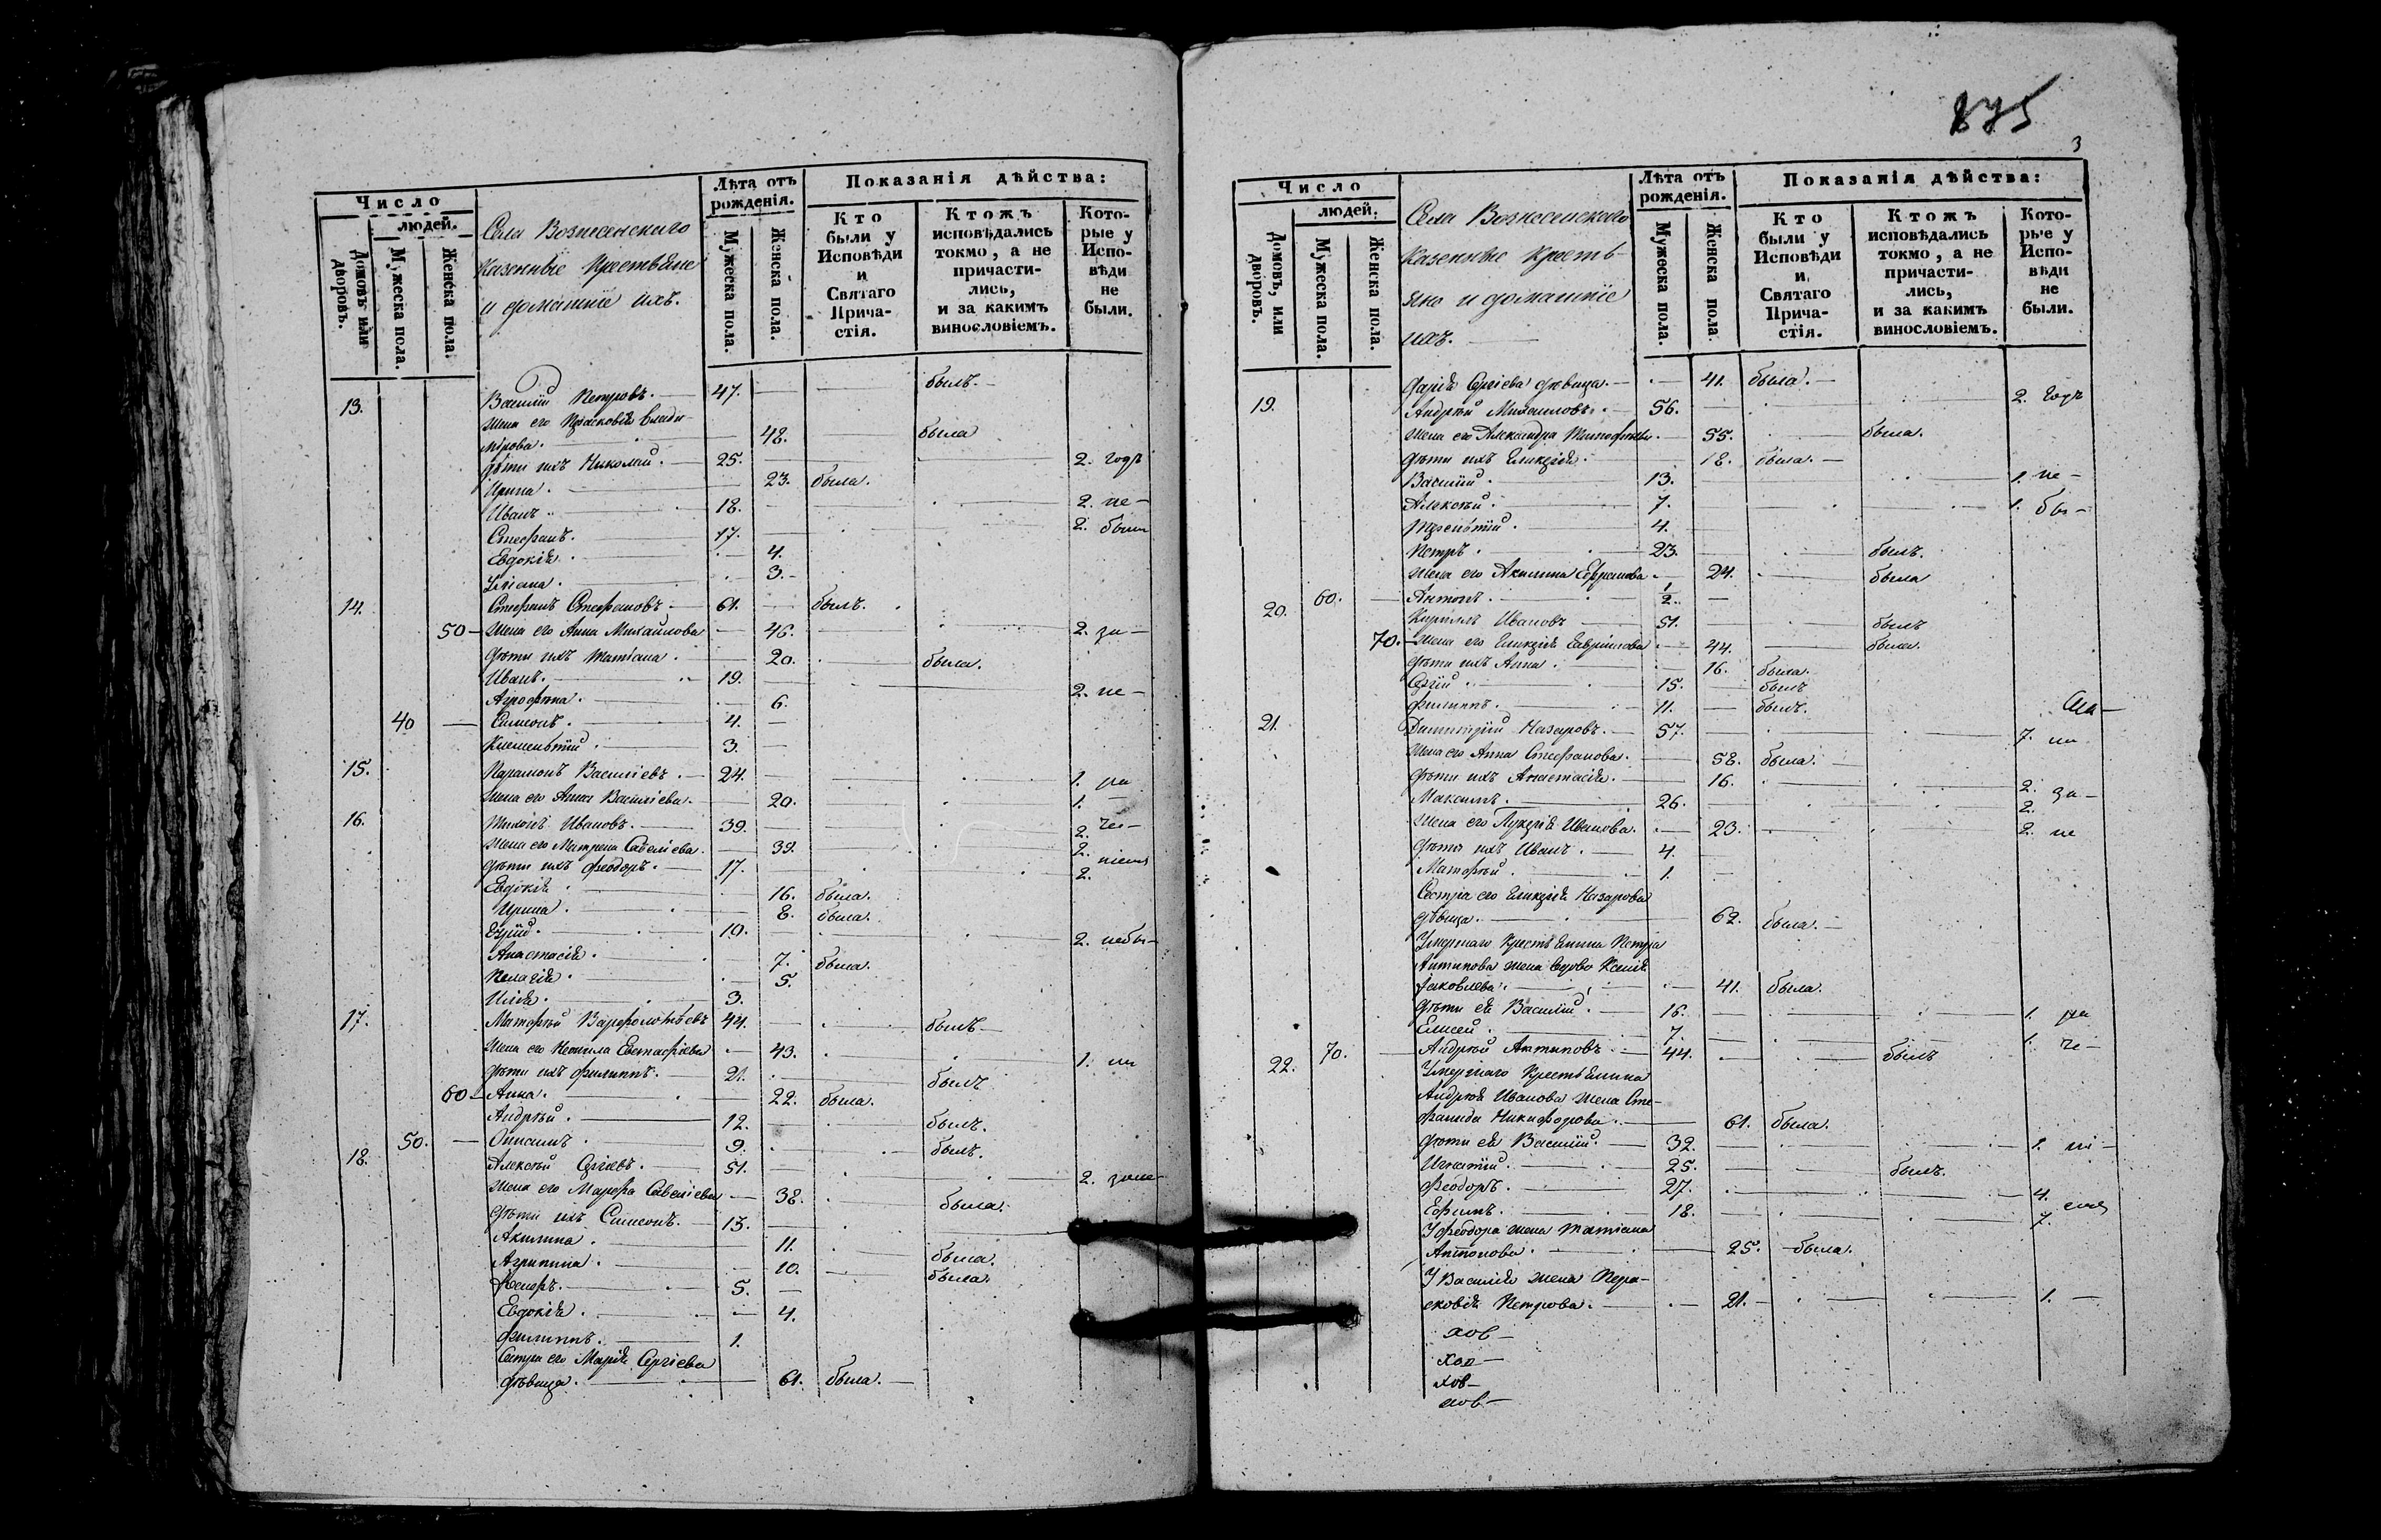 Число
людей.
Домовъ или дворовъ.
Мужеска пола.
Женска пола.
Села Вознесенскаго
казенные крестьяне
и домашніе ихъ.
Лѣта отъ рожденія.
Мужеска пола.
Женска пола.
Показанія дѣйства:
Кто были у Исповѣди и Святаго Прича-стія.
Ктожъ исповѣдались токмо, а не причасти-лись, и за какимъ винословіемъ.
Кото-рые у Испо-вѣди не были.
13. Василій Петровъ. 47. былъ.
Жена его Прасковія Влади-
мірова. 48. была
Дѣти ихъ Николай. 25. 2. годъ
Ирина. 23. была.
Иванъ. 18. 2. не-
Стефанъ. 17. 2. были
Евдокія. 4.
3.
14. Стефанъ Стефановъ. 61. былъ.
50 Жена его Анна Михайлова 46. 2. за-
Дѣти ихъ Татіана. 20. была.
Иванъ. 19. 2. не-
Агрофѣна. 6.
40 Симеонъ. 4.
Климентій. 3.
15. Парамонъ Василіевъ. 24. 1. ра
Жена его Анна Василіева. 20. 1.
16. Тихонъ Ивановъ. 39. 2. че-
Жена его Матрена Савеліева. 39. 2. ніемъ
Дѣти ихъ Феодоръ. 17. 2.
Евдокія. 16. была.
Ирина. 8. была.
10. 2. небы-
Анастасія. 7. была.
Пелагія. 5.
Илія. 3.
17. Матфей Варфоломѣевъ 44. былъ
Жена его Неонила Евстафіева 43. 1. ли
Дѣти ихъ Филиппъ. 21. былъ
60 Анна. 22. была.
Андрей. 12. былъ.
50. 9. былъ.
18. Алексѣй Сергіевъ. 51. 2.
Жена его Марфа Савеліева 38. была.
Дѣти ихъ Симеонъ. 13.
Акилина. 11. была.
Агрипина. 10. была.
5.
Евдокія. 4.
Филиппъ. 1.
Сестра его Марія Сергіева
дѣвица. 61. была.
875
3
Число
людей.
Домовъ, или дворовъ.
Мужеска пола.
Женска пола.
Села Вознесенскаго
казенные кресть-
яне и домашніе
ихъ.
Лѣта отъ рожденія.
Мужеска пола.
Женска пола.
Показанія дѣйства:
Кто были у Исповѣди и Святаго Прича-стія.
Ктожъ исповѣдались токмо, а не причасти-лись, и за какимъ винословіемъ.
Кото-рые у Испо-вѣди не были.
Дарія Сергіева дѣвица. 41. была.
19. Андрей Михаиловъ. 56. 2. годъ
Жена его Александра Тимофѣева. 55. была.
Дѣти ихъ Гликерія. 18. была.
Василій. 13. 1. не-
Алексѣй. 7. 1. бы-
Терентій. 4.
Петръ. 23. былъ.
Жена его Акилина Ефремова. 24. была
60. Антонъ. 1/2.
20. Кириллъ Ивановъ 51. былъ
70. Жена его Гликерія Гавріилова 44. была.
Дѣти ихъ Анна. 16. была.
Сергій. 15. былъ
Филиппъ. 11. былъ.
21. Димитрій Назаровъ. 57. 7.
Жена его Анна Стефанова. 58. была.
Дѣти ихъ Анастасія. 16. 2. за-
Максимъ. 26. 2.
Жена его Лукерія Иванова. 23. 2. не
Дѣти ихъ Иванъ. 4.
Матфей. 1.
Сестра его Гликерія Назарова
дѣвица. 62. была.
Умершаго Крестьянина Петра
Антипова жена вдова Ксенія
Іаковлева. 41. была.
Дѣти ея Василій. 16. 1. ра
Елисей. 7. 1. че-
70. Андрей Антиповъ 44. былъ
22. Умершаго Крестьянина
Андрея Иванова жена Сте-
фанида Никифорова. 61. была.
Дѣти ея Василій. 32. 1. ні-
Игнатій. 25. былъ.
Феодоръ. 27. 4.
Ефимъ. 18. 7.
У Феодора жена Татіана
Антонова. 25. была.
У Василія жена Пера-
сковія Петрова. 21. 1.